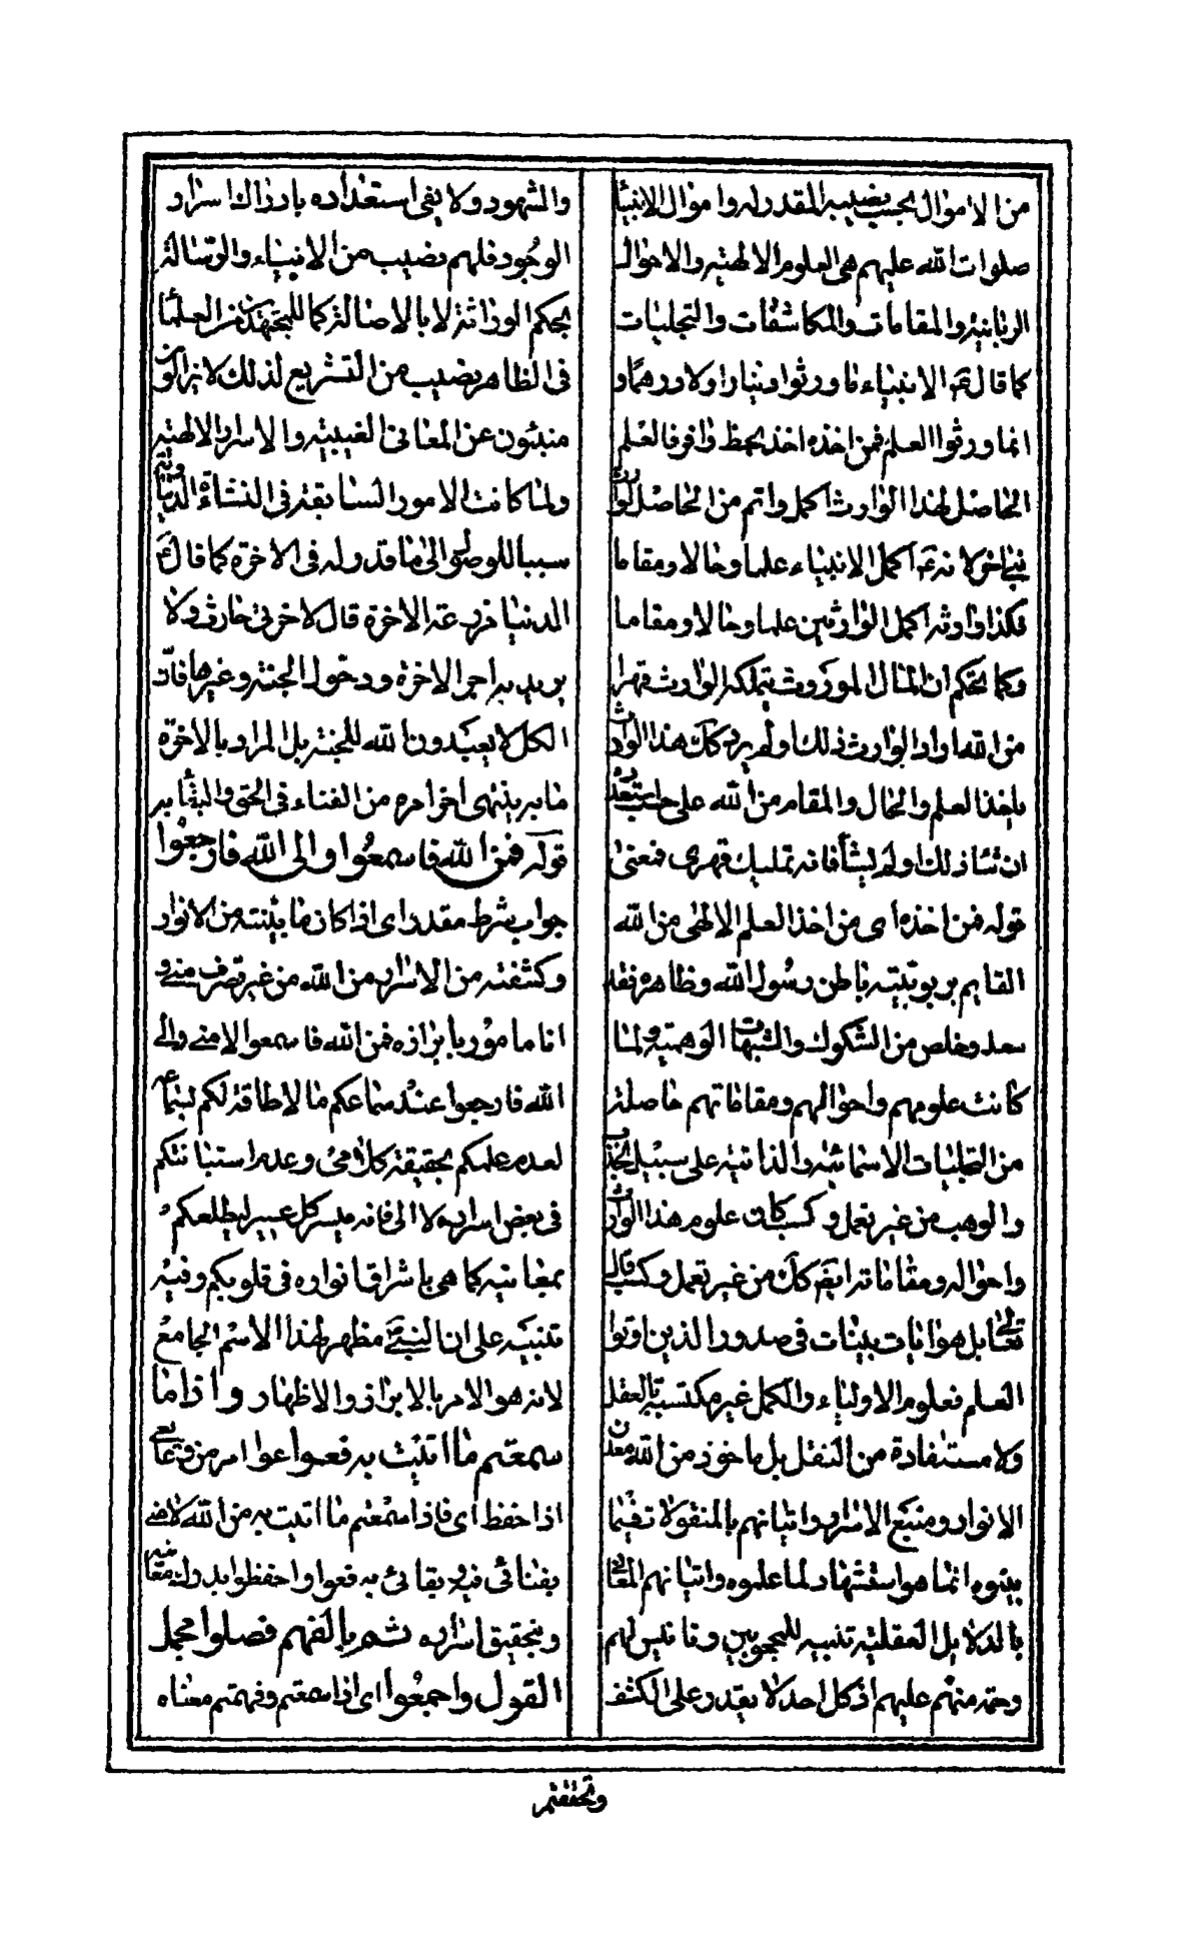 من الاموال بحسب نصيبه المقدر له واموال الانبيا
صلوات الله عليهم هي العلوم الالهية والاحوال
الربانية والمقامات والمكاشفات والتجليات
كما قال عم الانبياء ما ورثوا دينارا ولا درهما و
انما ورثوا العلم فمن اخذه اخذ بحظ وافر فالعلم
الحاصل لهذا الوارث اكمل واتم من الحاصل لوارث
نبي اخر لانه عم اكمل الانبياء علما وحالا ومقاما
فكذا وارثه اكمل الوارثين علما وحالا ومقاما
وكما يحكم ان المال الموروث يتملكه الوارث قهرا
من الله اراد الوارث ذلك او لم يرد كك هذا الوارث
ياخذ العلم والحال والمقام من الله على حسب استعداده
ان شاء ذلك او لم يشأ فانه تمليك قهرى فمعنى
قوله فمن اخذه اى من اخذ العلم الالهى من الله
القايم بربوبيته باطن رسول الله وظاهره فقد
سعد وخلص من الشكوك والشبهات الوهمية ولما
كانت علومهم واحوالهم ومقاماتهم حاصلة
من التجليات الاسمائية والذاتية على سبيل الجذب
والوهب من غير تعمل وكسب كانت علوم هذا الوارث
واحواله ومقاماته ايضا كك من غير تعمل وكسب قال
تعالى بل هو ايات بينات في صدور الذين اوتوا
العلم فعلوم الاولياء والكمل غير مكتسبة بالعقل
ولا مستفادة من النقل بل ماخوذ من الله معدن
الانوار ومنبع الاسرار واتيانهم بالمنقولات فيما
بينوه انما هو استشهاد لما علموه واتيانهم المعانى
بالدلايل العقلية تنبيه للمحجوبين وتانيس لهم
رحمة منهم عليهم اذ كل احد لا يقدر على الكشف
والشهود ولا يفى استعداده بادراك اسرار
الوجود فلهم نصيب من الانبياء والرسالة
بحكم الوراثة لا بالاصالة كما للمجتهدين من العلماء
فى الظاهر نصيب من التشريع لذلك لا يزالون
منبئون عن المعانى الغيبية والاسرار الالهية
ولما كانت الامور السابقة فى النشاة الدنياوية
سببا للوصول الى ما قدر له فى الاخرة كما قال عم
الدنيا مزرعة الاخرة قال لاخرتى حارث ولا
يريد به اجر الاخرة ودخول الجنة وغيرها فان
الكل لا يعبدون الله للجنة بل المراد بالاخرة
ما به ينتهى اخر امره من الفناء فى الحق والبقأ به
قوله فمن الله فاسمعوا والى الله فارجعوا
جواب شرط مقدر اى اذا كان ما بينته من الانوار
وكشفته من الاسرار من الله من غير تصرف منى و
انا مامور بابرازه فمن الله فاسمعوا لا منى والى
الله فارجعوا عند سماعكم ما لا طاقة لكم لسماعه
لعدم علمكم بحقيقة كلامى وعدم استبانتكم
فى بعض اسراره لا الى فانه ميسر كل عسير ليطلعكم
بمعانيه كما هى باشراق انواره فى قلوبكم وفيه
تنبيه على ان النبي مظهر لهذا الاسم الجامع
لانه هو الامر بالابراز والاظهار واذا ما
سمعتم ما اتيت به فعوا عوا امر من وعى يعى
اذا حفظ اى فاذا سمعتم ما اتيت به من الله لا منى
بفنائى فيه وبقائى به فعوا واحفظوا بدرك معانيه
وبتحقيق اسراره ثم بالفهم فصلوا مجمل
القول واجمعوا اى اذا سمعتم وفهمتم معناه
وتحققتم